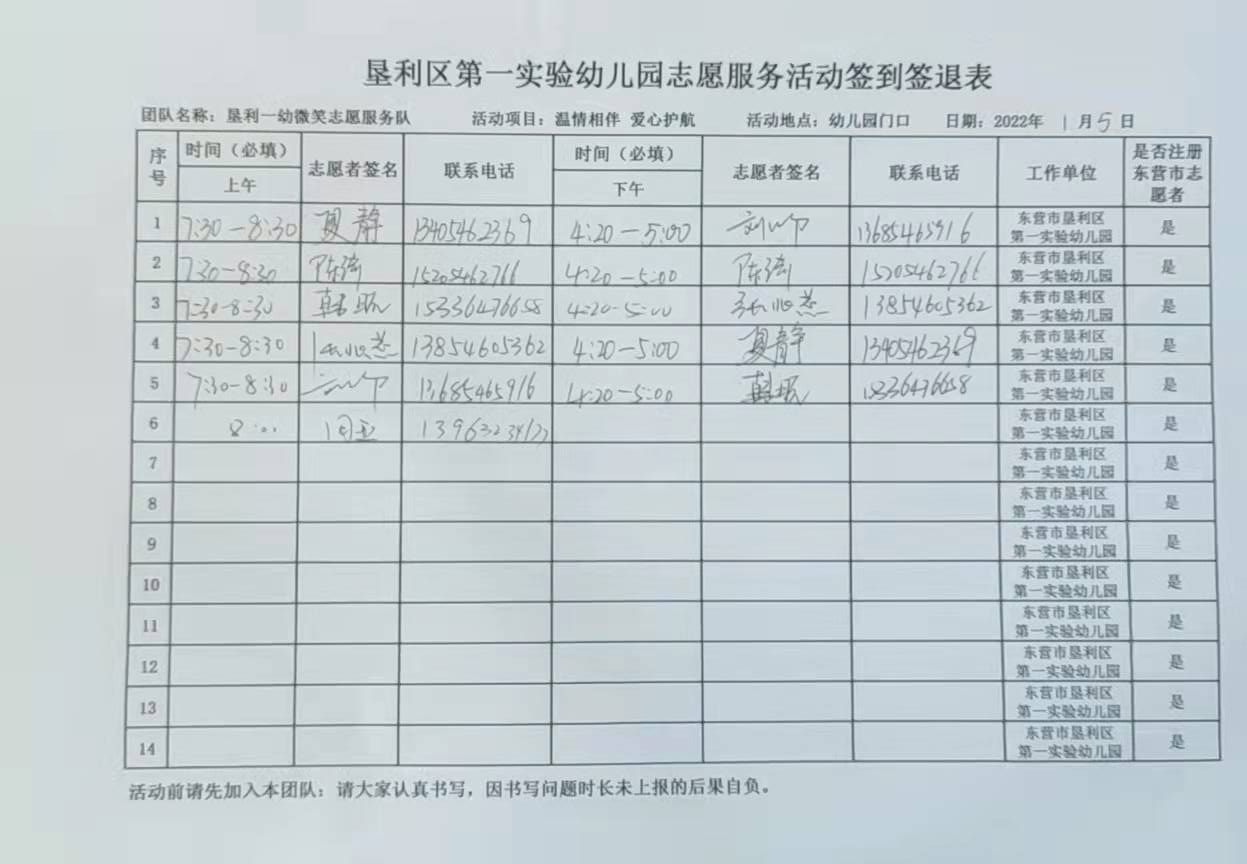 垦利区第一实验幼儿园志愿服务活动签到签退表
团队名称：垦利一幼微笑志愿服务队 活动项目：温情相伴 爱心护航 活动地点：幼儿园门口 日期：2022年 1月5日
序号 时间（必填） 上午 志愿者签名 联系电话 时间（必填） 下午 志愿者签名 联系电话 工作单位 是否注册东营市志愿者
1 7:30-8:30 夏静 13405462369 4:20-5:00 13685465916 东营市垦利区第一实验幼儿园 是
2 7:30-8:30 15205462766 4:20-5:00 15205462766 东营市垦利区第一实验幼儿园 是
3 7:30-8:30 15336476658 4:20-5:00 13854605362 东营市垦利区第一实验幼儿园 是
4 7:30-8:30 13854605362 4:20-5:00 夏静 13405462369 东营市垦利区第一实验幼儿园 是
5 7:30-8:30 13685465916 4:20-5:00 东营市垦利区第一实验幼儿园 是
6 东营市垦利区第一实验幼儿园 是
7 东营市垦利区第一实验幼儿园 是
8 东营市垦利区第一实验幼儿园 是
9 东营市垦利区第一实验幼儿园 是
10 东营市垦利区第一实验幼儿园 是
11 东营市垦利区第一实验幼儿园 是
12 东营市垦利区第一实验幼儿园 是
13 东营市垦利区第一实验幼儿园 是
14 东营市垦利区第一实验幼儿园 是
活动前请先加入本团队：请大家认真书写，因书写问题时长未上报的后果自负。